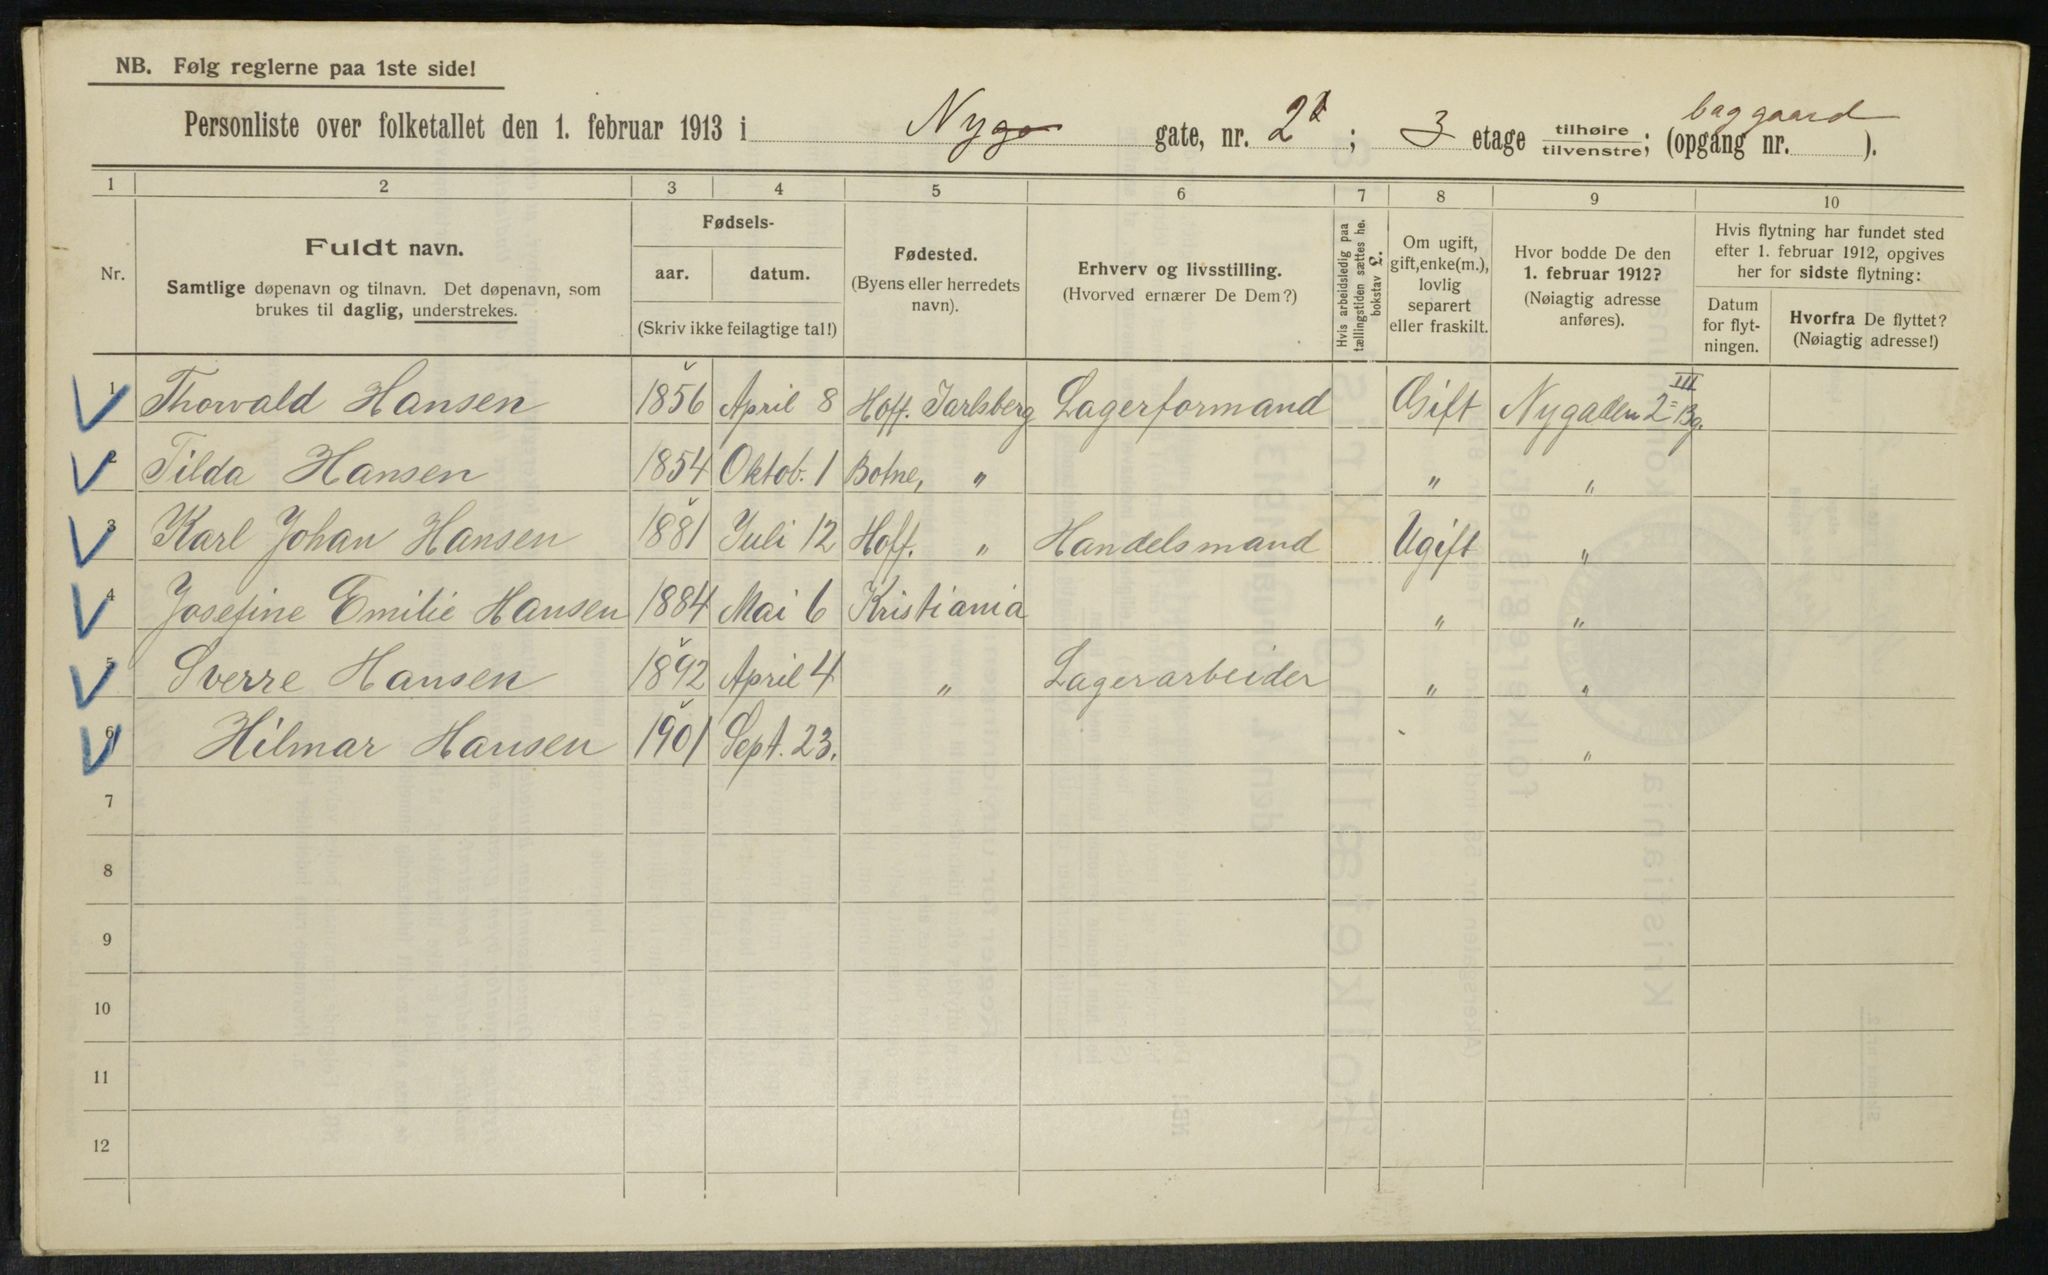 NB. Følg reglerne paa 1ste side!
Personliste over folketallet den 1. februar 1913 i Nygo gate, nr. 2; 3 etage tilhøire/tilvenstre; (opgang nr. baggaard).
1 2 3 4 5 6 7 8 9 10
Nr.
Fuldt navn.
Samtlige døpenavn og tilnavn. Det døpenavn, som
brukes til daglig, understrekes.
Fødsels-
aar. datum.
(Skriv ikke feilagtige tal!)
Fødested.
(Byens eller herredets
navn).
Erhverv og livsstilling.
(Hvorved ernærer De Dem?)
Hvis arbeidsledig paa
tællingstiden sættes he.
bokstav L.
Om ugift,
gift, enke(m.),
lovlig
separert
eller fraskilt.
Hvor bodde De den
1. februar 1912?
(Nøiagtig adresse
anføres).
Hvis flytning har fundet sted
efter 1. februar 1912, opgives
her for sidste flytning:
Datum
for flyt-
ningen.
Hvorfra De flyttet?
(Nøiagtig adresse!)
1 Thorvald Hansen 1856 April 8 Hoff. Jarlsberg Lagerformand Gift Nygaden 2 III Bg.
2 Tilda Hansen 1854 Oktob. 1 Botne, " " "
3 Karl Johan Hansen 1881 Juli 12 Hoff. " Handelsmand Ugift "
4 Josefine Emilie Hansen 1884 Mai 6 Kristiania " "
5 Sverre Hansen 1892 April 4 " Lagerarbeider " "
6 Hilmar Hansen 1901 Sept. 23. "
7
8
9
10
11
12